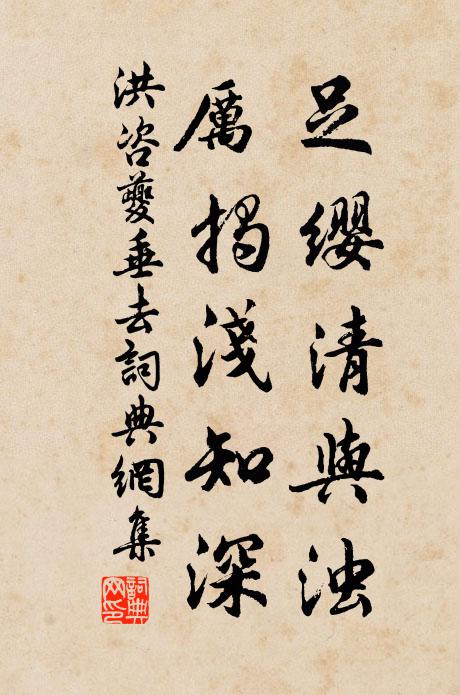 足纓清與浊
厲揭淺知深
洪咨夔垂去詞典網集
詞典
网印